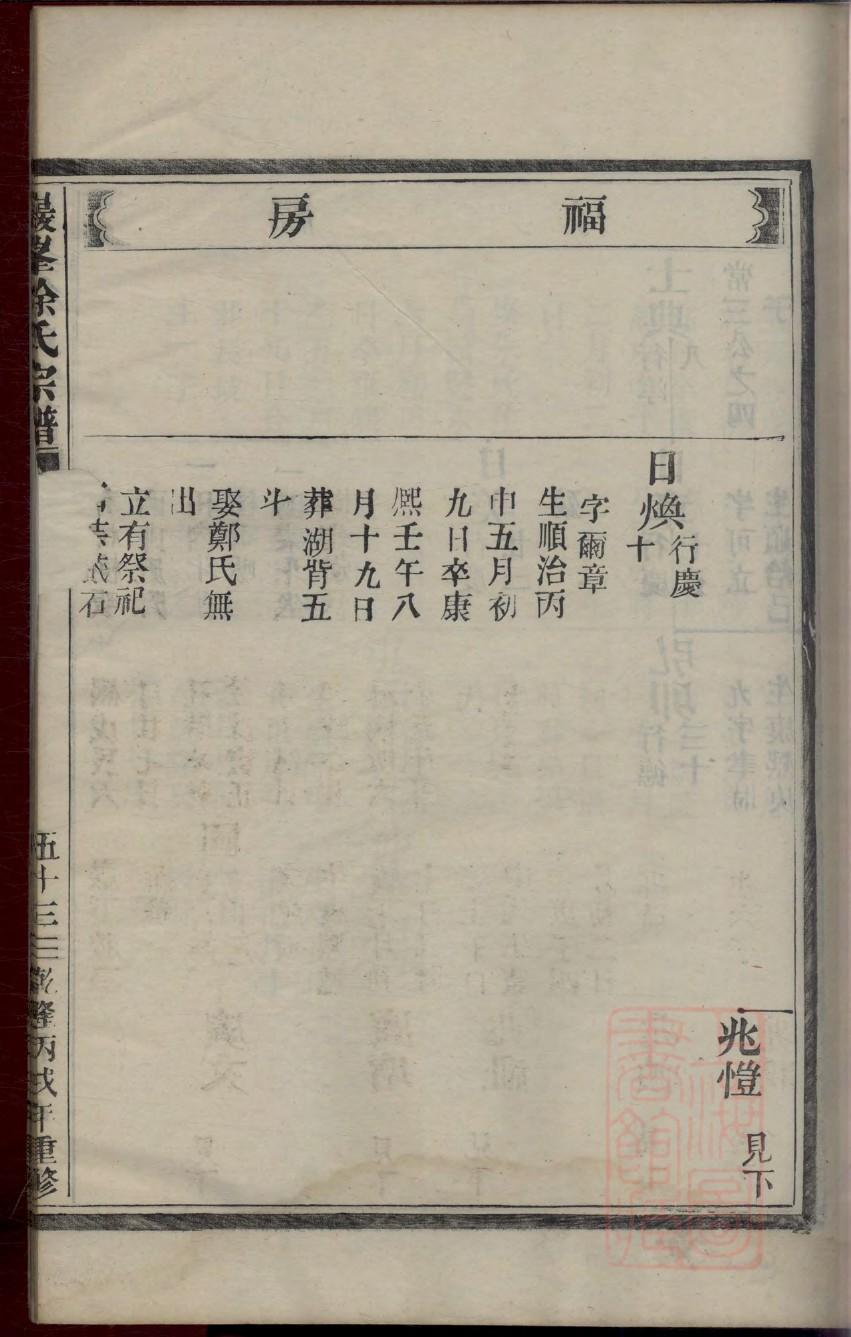 福房
日煥
行慶
十
字爾章
生順治丙
申五月初
九日卒康
熈壬午八
月十九日
葬湖背五
斗
娶鄭氏無
出
立有祭祀
石
兆愷
見下
徐氏宗譜
伍十三
乾隆丙戌年重修